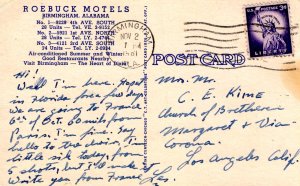 ROEBUCK MOTELS
BIRMINGHAM, ALABAMA
No. 1—8229 4th AVE. SOUTH
28 Units - Tel. VE
No. 2—8921 1st AVE. NORTH
Units - Tel. LY.
No. 3—4131 3rd AVE. SOUTH
34 Units - Tel. LY.
Air-conditioned Summer and Winter
Good Restaurants Nearby
Visit Birmingham - The Heart of Dixie
BIRMINGHAM
NOV 2
ALA.
U.S. POSTAGE
3¢
LIBERTY
POST CARD
Hi!
Well I'm here. Spent
in Florida few days
We are going to France
6th of Oct. 60 miles from
Paris. I'm fine. Say
hello to the dear Jim
little silk today, from
5 shots, but I'll make it
Write you from France.
Les.
Mr. Mr.
C. E. Kime
Church of Brethern
Margaret & Via-
Corona
Los Angeles Calif